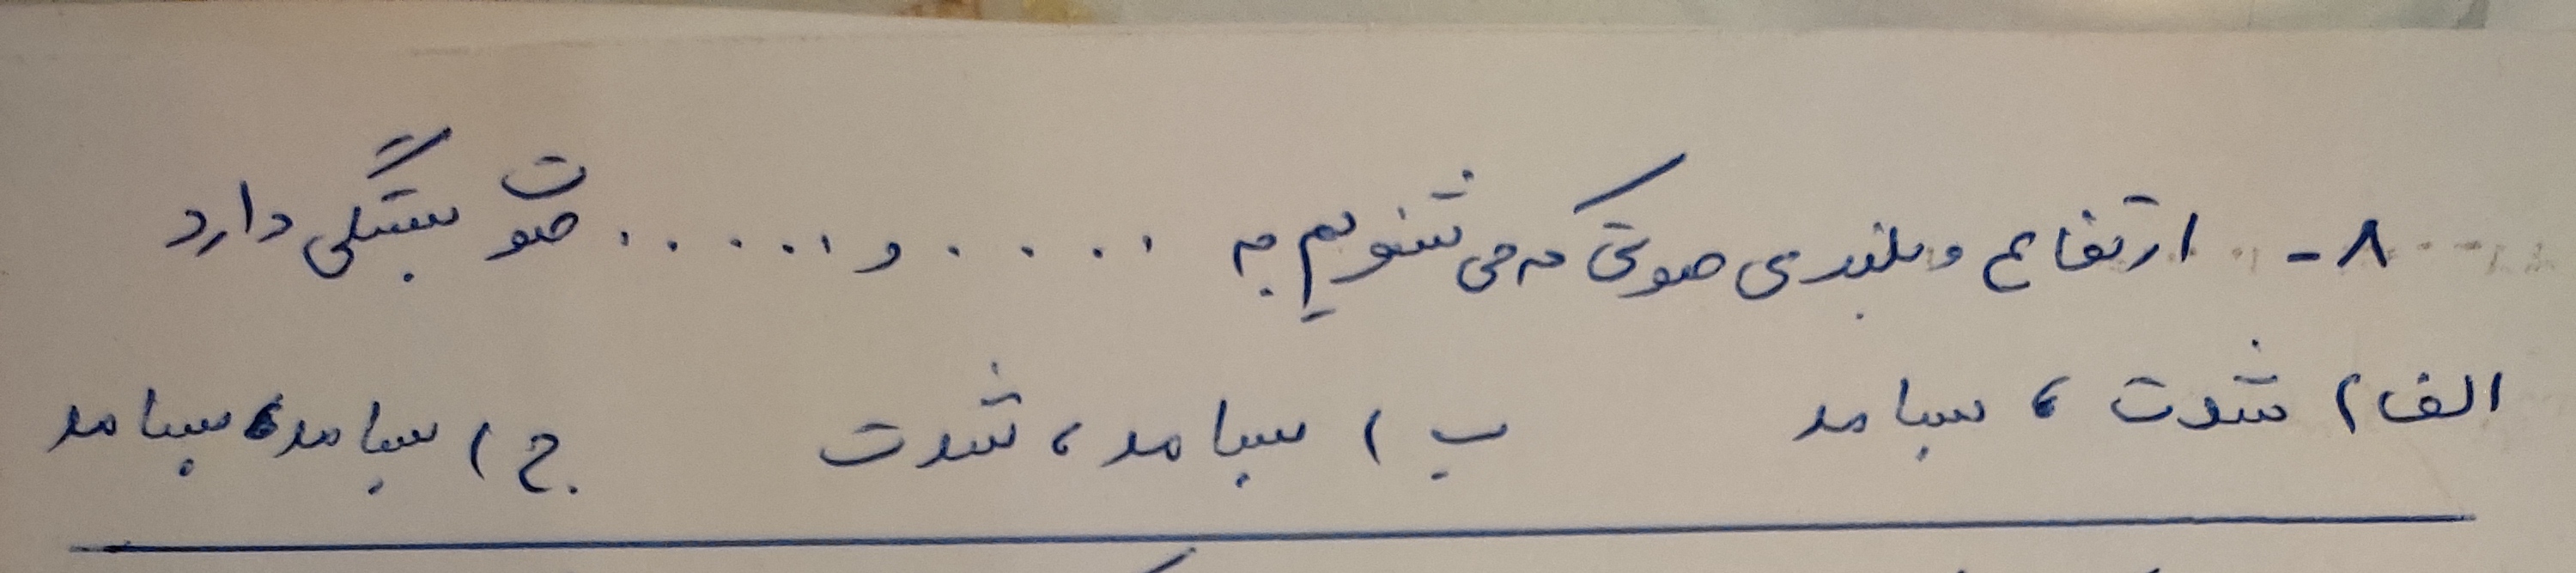 ۸- ارتفاع و بلندی صوتی که می شنویم به ..... و ...... صوت بستگی دارد
الف) شدت ، بسامد ب) بسامد ، شدت ج) بسامد ، بسامد